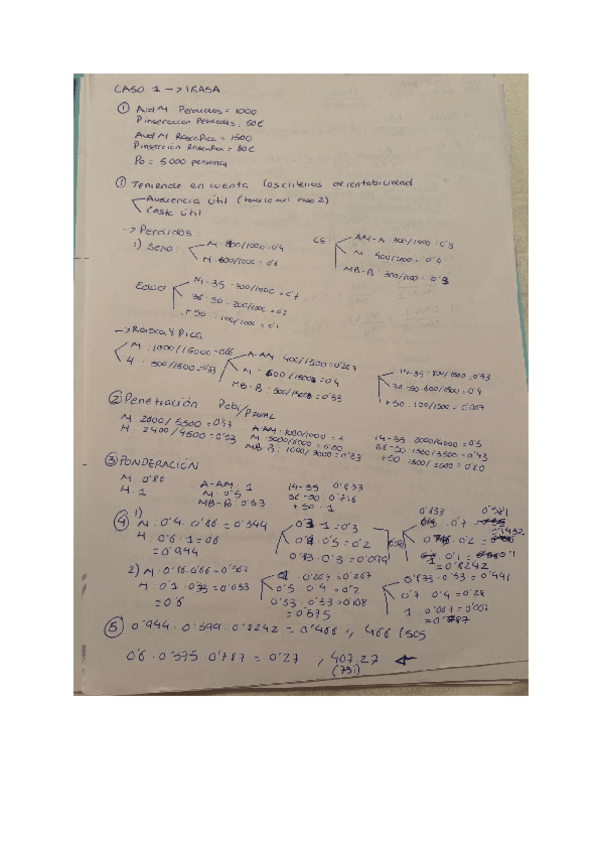 CASO 1 -> IRASA
① Aud M Perdidos = 1000
P inserción Perdidos: 50€
Aud M RascoPica = 1500
P inserción RascoPica = 80€
Po = 5000 personas
① Teniendo en cuenta los criterios de rentabilidad
Audiencia útil (tenerlo en el paso 2)
Coste útil
-> Perdidos:
1) Sexo: M. 400/1000 = 0'4
H. 600/1000 = 0'6
CS: AM-A 300/1000 = 0'3
M: 400/1000 = 0'4
MB-B: 300/1000 = 0'3
Edad 14-35 - 700/1000 = 0'7
36-50 - 200/1000 = 0'2
+50 : 100/1000 = 0'1
-> Rasca y Pica
M: 1000/1500 = 0'66
H. 500/1500 = 0'33
A-AM: 400/1500 = 0'267
M: 600/1500 = 0'4
MB-B: 500/1500 = 0'33
14-35: 800/1500 = 0'53
36-50: 600/1500 = 0'4
+50: 100/1500 = 0'067
② Penetración Pobj/Ptotal
H: 2400/4500 = 0'53
A-AM: 1000/1000 = 1
MB-B: 1000/3000 = 0'33
14-35: 2000/4000 = 0'5
36-50: 1500/3500 = 0'43
+50: 1500/2500 = 0'60
③ PONDERACIÓN
M: 0'86
H: 1
A-AM: 1
M: 0'5
MB-B: 0'33
14-35 0'833
36-50: 0'716
+50 · 1
④ 1)
M: 0'4 · 0'86 = 0'344
H: 0'6 · 1 = 0'6
= 0'944
1 = 0'3
0'5 = 0'2
0'33 · 0'3 = 0'099
0'833 · 0'7 = 0'581
0'2 = 0'1432
0'1 =
= 0'8242
2) M · 0'86 · 0'66 = 0'567
H: 0'1 · 0'33 = 0'033
= 0'6
0'267 = 0'267
0'5 0'4 = 0'2
0'33 · 0'33 = 0'108
= 0'575
0'833 · 0'53 = 0'441
0'7 0'4 = 0'28
1 0'067 = 0'067
= 0'787
⑤ 0'944 · 0'599 · 0'8242 = 0'466 ,, 466
0'6 · 0'575 · 0'787 = 0'27 , 407.27 <-